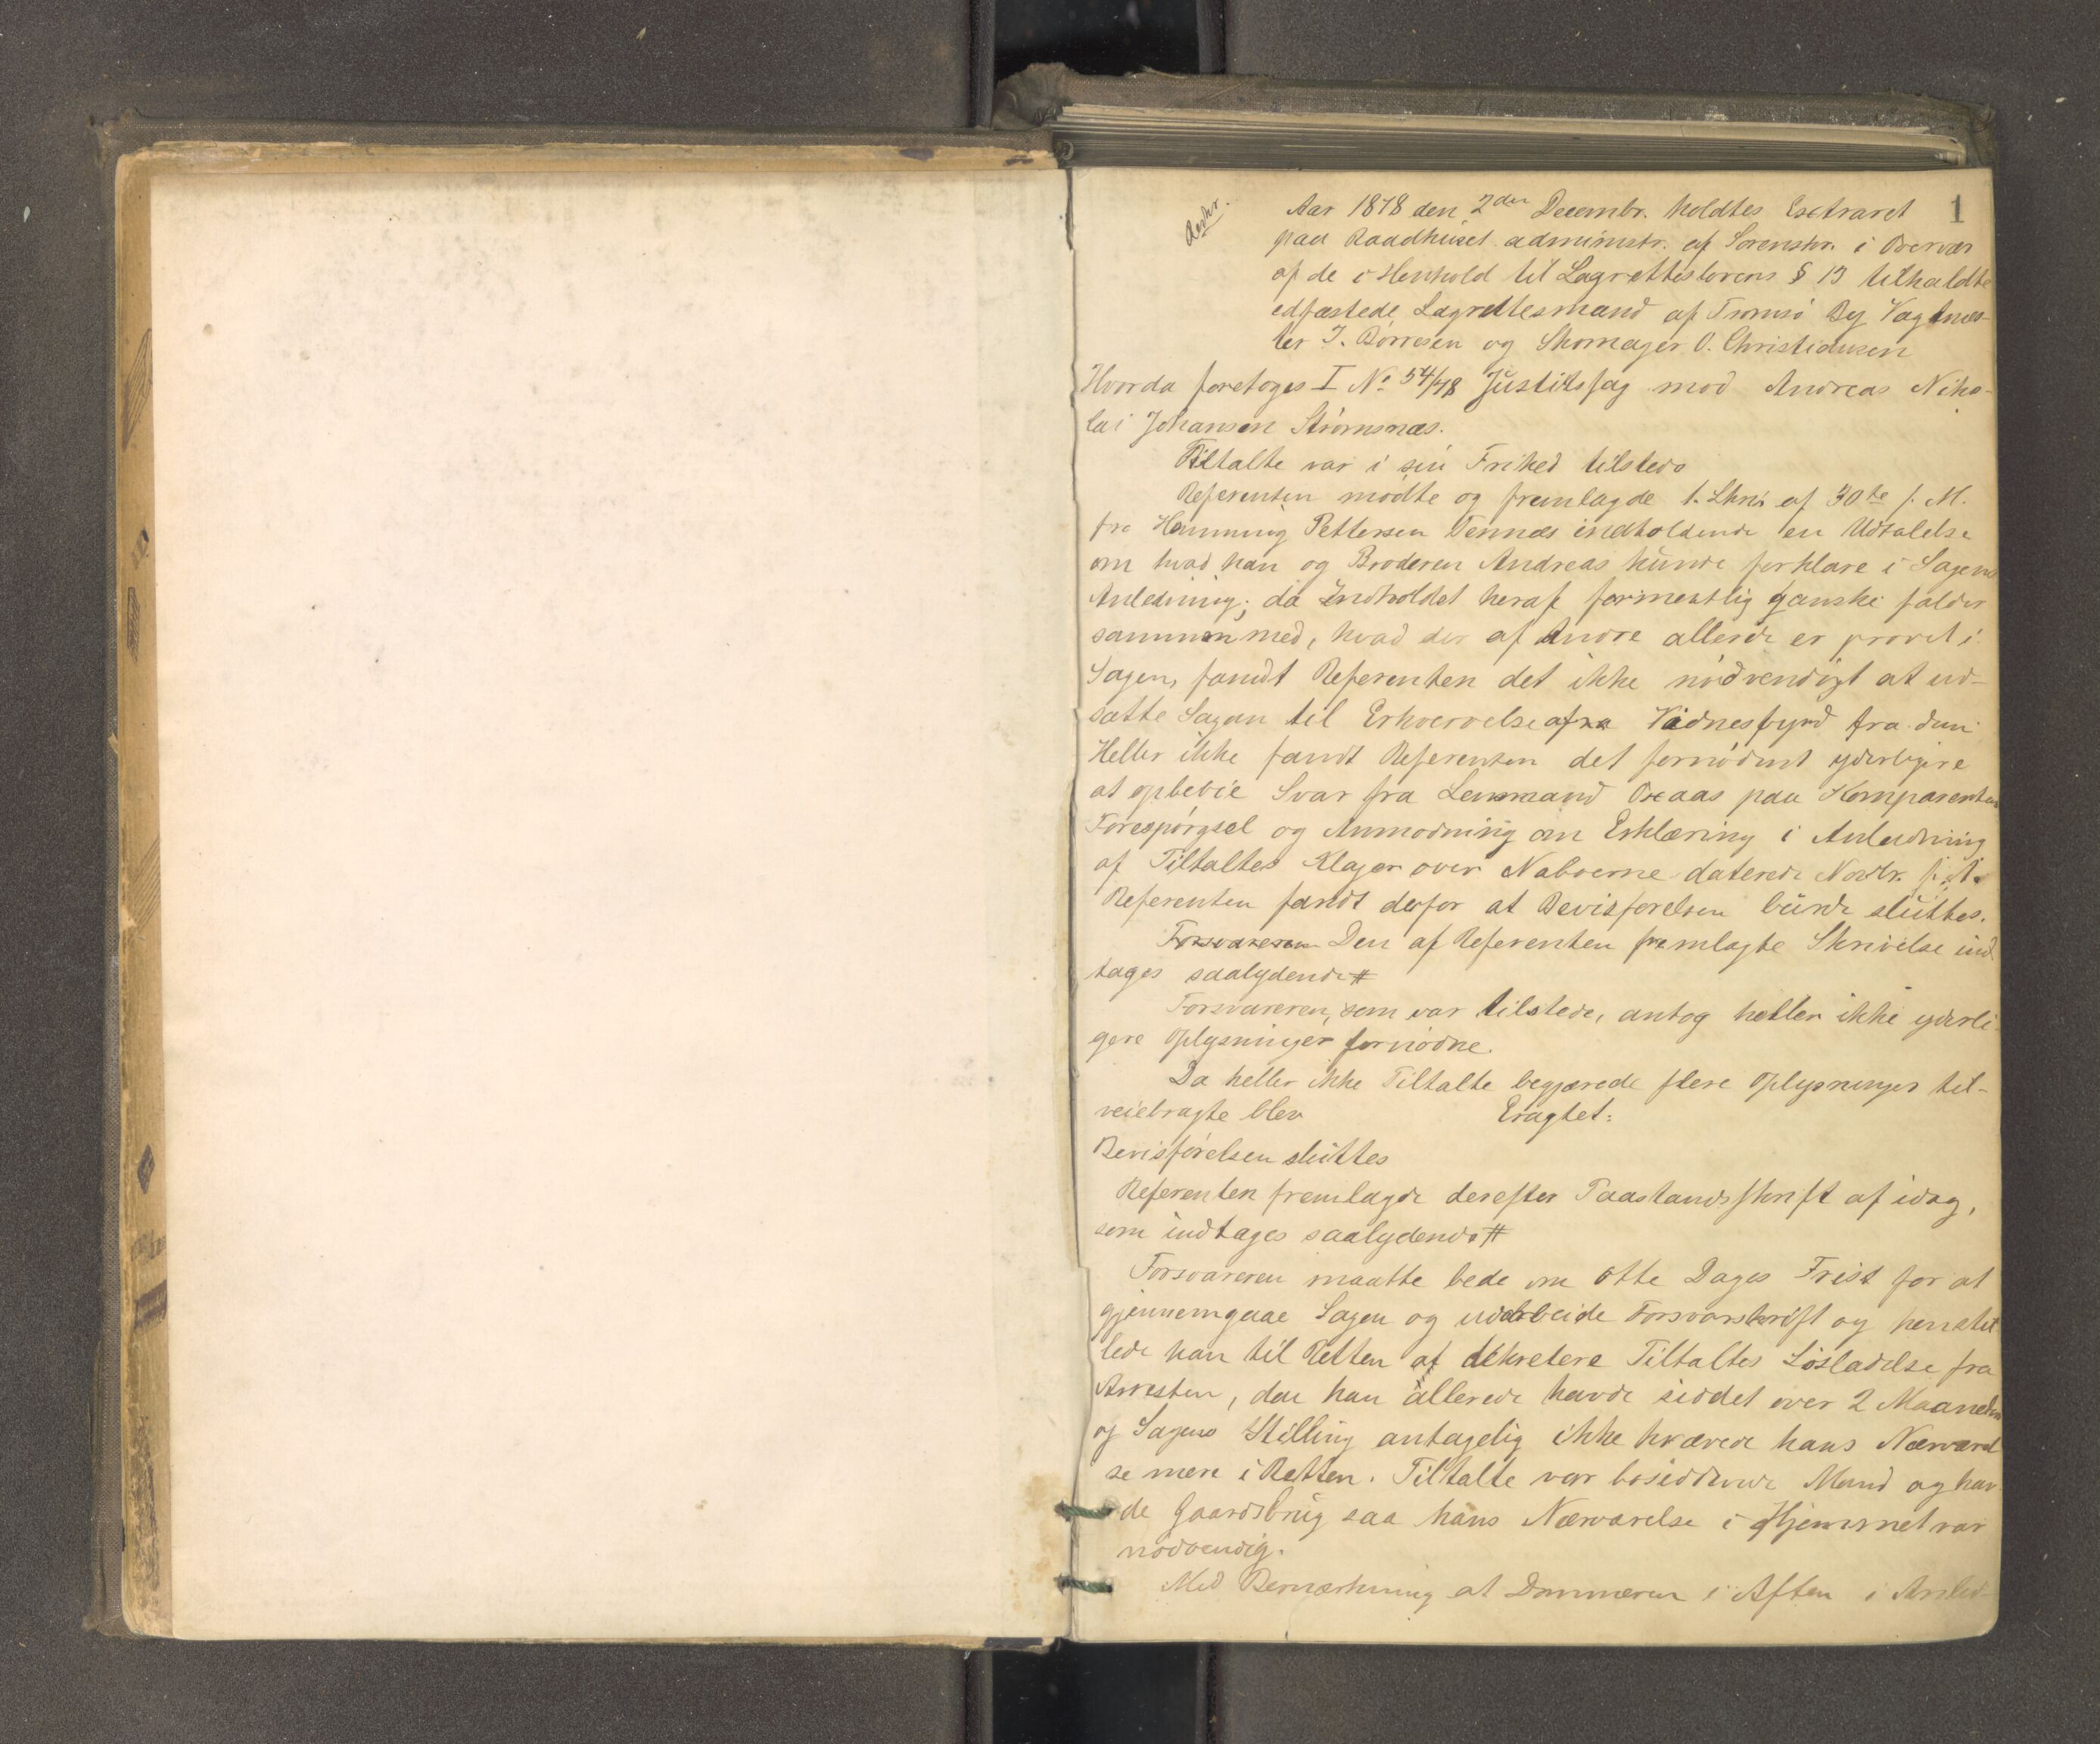 1
Aar 1878 den 2den Decembr. holdtes Extraret
paa Raadhuset administr. af Sorenskr. i Overvær
af de i Henhold til Lagrettelovens § 13 tilkaldte
edfæstede Lagrettesmænd af Tromsø By Vagtmes-
ter J. Børresen og Skomager O. Christiansen
Hvorda foretoges I No 54/78 Justitssag mod Andreas Niko-
lai Johansen Strømsnæs.
Tiltalte var i sin Frihed tilstede
Referenten mødte og fremlagde 1. Skriv af 30te f. M.
fra Henning Pettersen Tennæs indholdende en Udtalelse
om hvad han og Broderen Andreas kunde forklare i Sagens
Anledning; da Indholdet heraf formentlig ganske falder
sammen med, hvad der af Andre allerede er prøvet i
Sagen, fandt Referenten det ikke nødvendigt at ud-
sætte Sagen til Erhvervelse af Vidnesbyrd fra dem
Heller ikke fandt Referenten det fornødent yderligere
at opbebie Svar fra Lensmand Oxaas paa Komparenten
Forespørgsel og Anmodning om Erklæring i Anledning
af Tiltaltes Klager over Naboerne daterede Novbr. f. A.
Referenten fandt derfor at Bevisførelsen burde sluttes.
Forsvareren Den af Referenten fremlagte Skrivelse ind
tages saalydende #
Forsvareren, som var tilstede, antog heller ikke yderli
gere Oplysninger fornødne.
Da heller ikke Tiltalte begjærede flere Oplysninger til-
veiebragte blev Eragtet:
Bevisførelsen sluttes
Referenten fremlagde derefter Paastandsskrift af idag,
som indtages saalydende #
Forsvareren maatte bede om otte Dages Frist for at
gjennemgaae Sagen og udarbeide Forsvarskrift og henstil
lede han til Retten at dekretere Tiltaltes Løsladelse fra
Arresten, da han allerede havde siddet over 2 Maaneder
og Sagens Stilling antagelig ikke krævede hans Nærværel
se mere i Retten. Tiltalte var bosiddende Mand og hav
de Gaardsbrug saa hans Nærværelse i Hjemmet var
nødvendig.
Med Bemærkning at Dommeren i Aften i Anled-